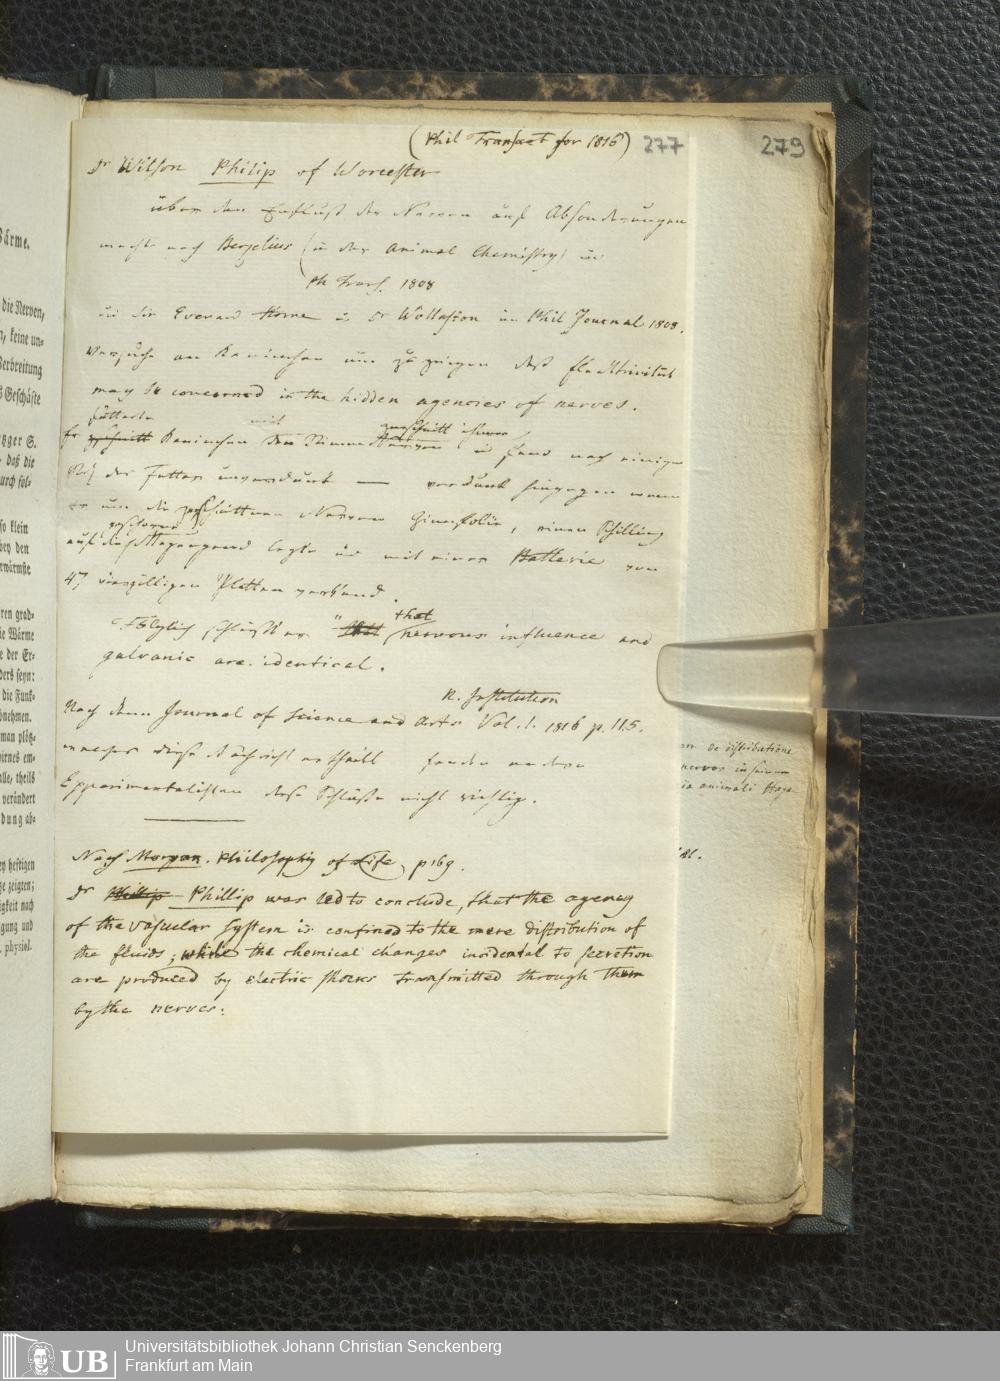 (Phil Transact for 1816) 277
279
Dr Wilson Philip of Worcester
über den Einfluß der Nerven auf Absonderungen
machte nach Berzelius (in der Animal Chemistry) in
Ph Trans. 1808
in Sir Everard Home in Dr Wollaston im Phil Journal 1809.
Versuche an Kaninchen um zu zeigen daß Elecktricitæt
may be concerned in the hidden agencies of nerves.
fütterte mit zerschnittenen
Er Kaninchen den Stimm Nerven in fand nach einiger
Zeit das Futter unverdaut — verdaut hingegen wenn
er um die zerschnittenen Nerven Zinnfolie, einen Schilling
auf die Magengegend legte und mit einer Batterie von
47 vierzölligen Platten verband.
Folglich schließt er " that nervous influence and
galvanic are identical.
R. Institution
Nach dem Journal of Science and Arts Vol. I. 1816 p. 115.
welches diese Nachricht ertheilt fanden andere
Experimentalisten diese Schlüsse nicht richtig.
Nach Morgan. Philosophy of Life, p 169.
Dr Phillip Phillip was led to conclude, that the agency
of the vascular system is confined to the mere distribution of
the fluids; while the chemical changes incidental to secretion
are produced by electric shocks transmitted through them
by the nerves.
de distributione
nervor in
animali Haga
Wärme.
die Nerven,
, keine un-
Verbreitung
Geschäfte
tzger S.
daß die
urch sol-
so klein
bey den
erwärmte
ren grad-
ie Wärme
e der Er-
ders seyn:
die Funk-
bnehmen.
man plötz-
irnes em-
alle, theils
verändert
dung ab-
ey heftigen
ge zeigten;
igkeit nach
gung und
physiol.
UB
Universitätsbibliothek Johann Christian Senckenberg
Frankfurt am Main